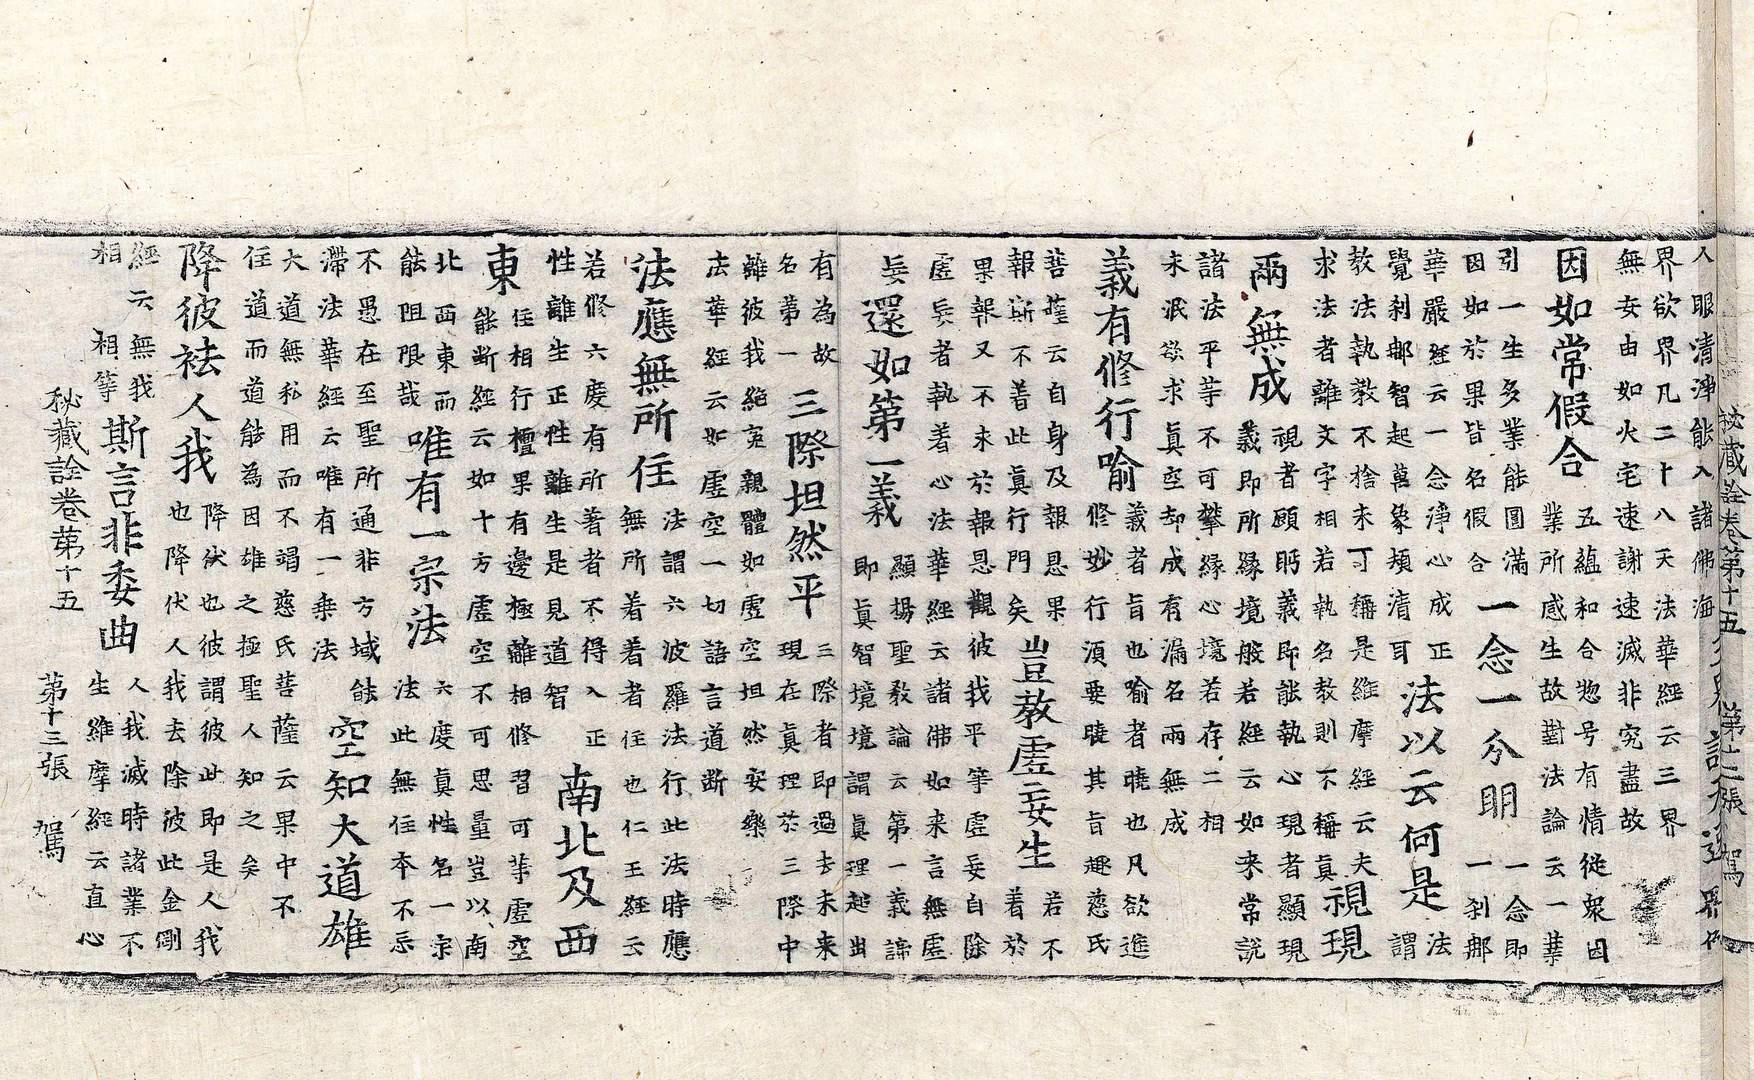 秘藏詮卷第十五 駕
人眼清淨能入諸佛海
界欲界凡二十八天法華經云三界
無安由如火宅速謝速滅非究盡故
因如常假合
五蘊和合惣号有情從衆因
業所感生故對法論云一業
引一生多業能圓滿
因如於果皆名假合
一念一分明
一念即
一刹那
華嚴經云一念淨心成正
覺刹那智起萬象頓清耳
法以云何是
法
謂
教法執教不捨未可稱是維摩經云夫
求法者離文字相若執名教則不稱真
視現
兩無成
視者顧眄義即能執心現者顯現
義即所緣境般若經云如来常說
諸法平等不可攀緣心境若存二相
未泯欲求真空却成有漏名兩無成
義有修行喻
義者旨也喻者曉也凡欲進
修妙行須要曉其旨趣慈氏
菩薩云自身及報恩果
報斯不着此真行門矣
豈教虛妄生
若不
着於
果報又不求於報恩觀彼我平等虛妄自除
虛妄者執着心法華經云諸佛如来言無虛
妄
還如第一義
顯揚聖教論云第一義諦
即真智境境謂真理起出
有為故
名第一
三際坦然平
三際者即過去未来
現在真理於三際中
離彼我絕寃親體如虛空坦然安樂
法華經云如虛空一切語言道断
法應無所住
法謂六波羅法行此法時應
無所着着者住也仁王經云
若修六度有所着者不得入正
性離生正性離生是見道智
南北及西
東
住相行檀果有邊極離相修習可等虛空
能断經云如十方虛空不可思量豈以南
北西東而
能阻限哉
唯有一宗法
六度真性名一宗
法此無住本不忘
不愚在至聖所通非方域能
滯法華經云唯有一乘法
空知大道雄
大道無私用而不竭慈氏菩薩云果中不
住道而道能為因雄之極聖人知之矣
降彼袪人我
降伏也彼謂彼此即是人我
也降伏人我去除彼此金剛
經云無我
相 相等
斯言非委曲
人我滅時諸業不
生維摩經云直心
秘藏詮卷第十五 第十三張 駕